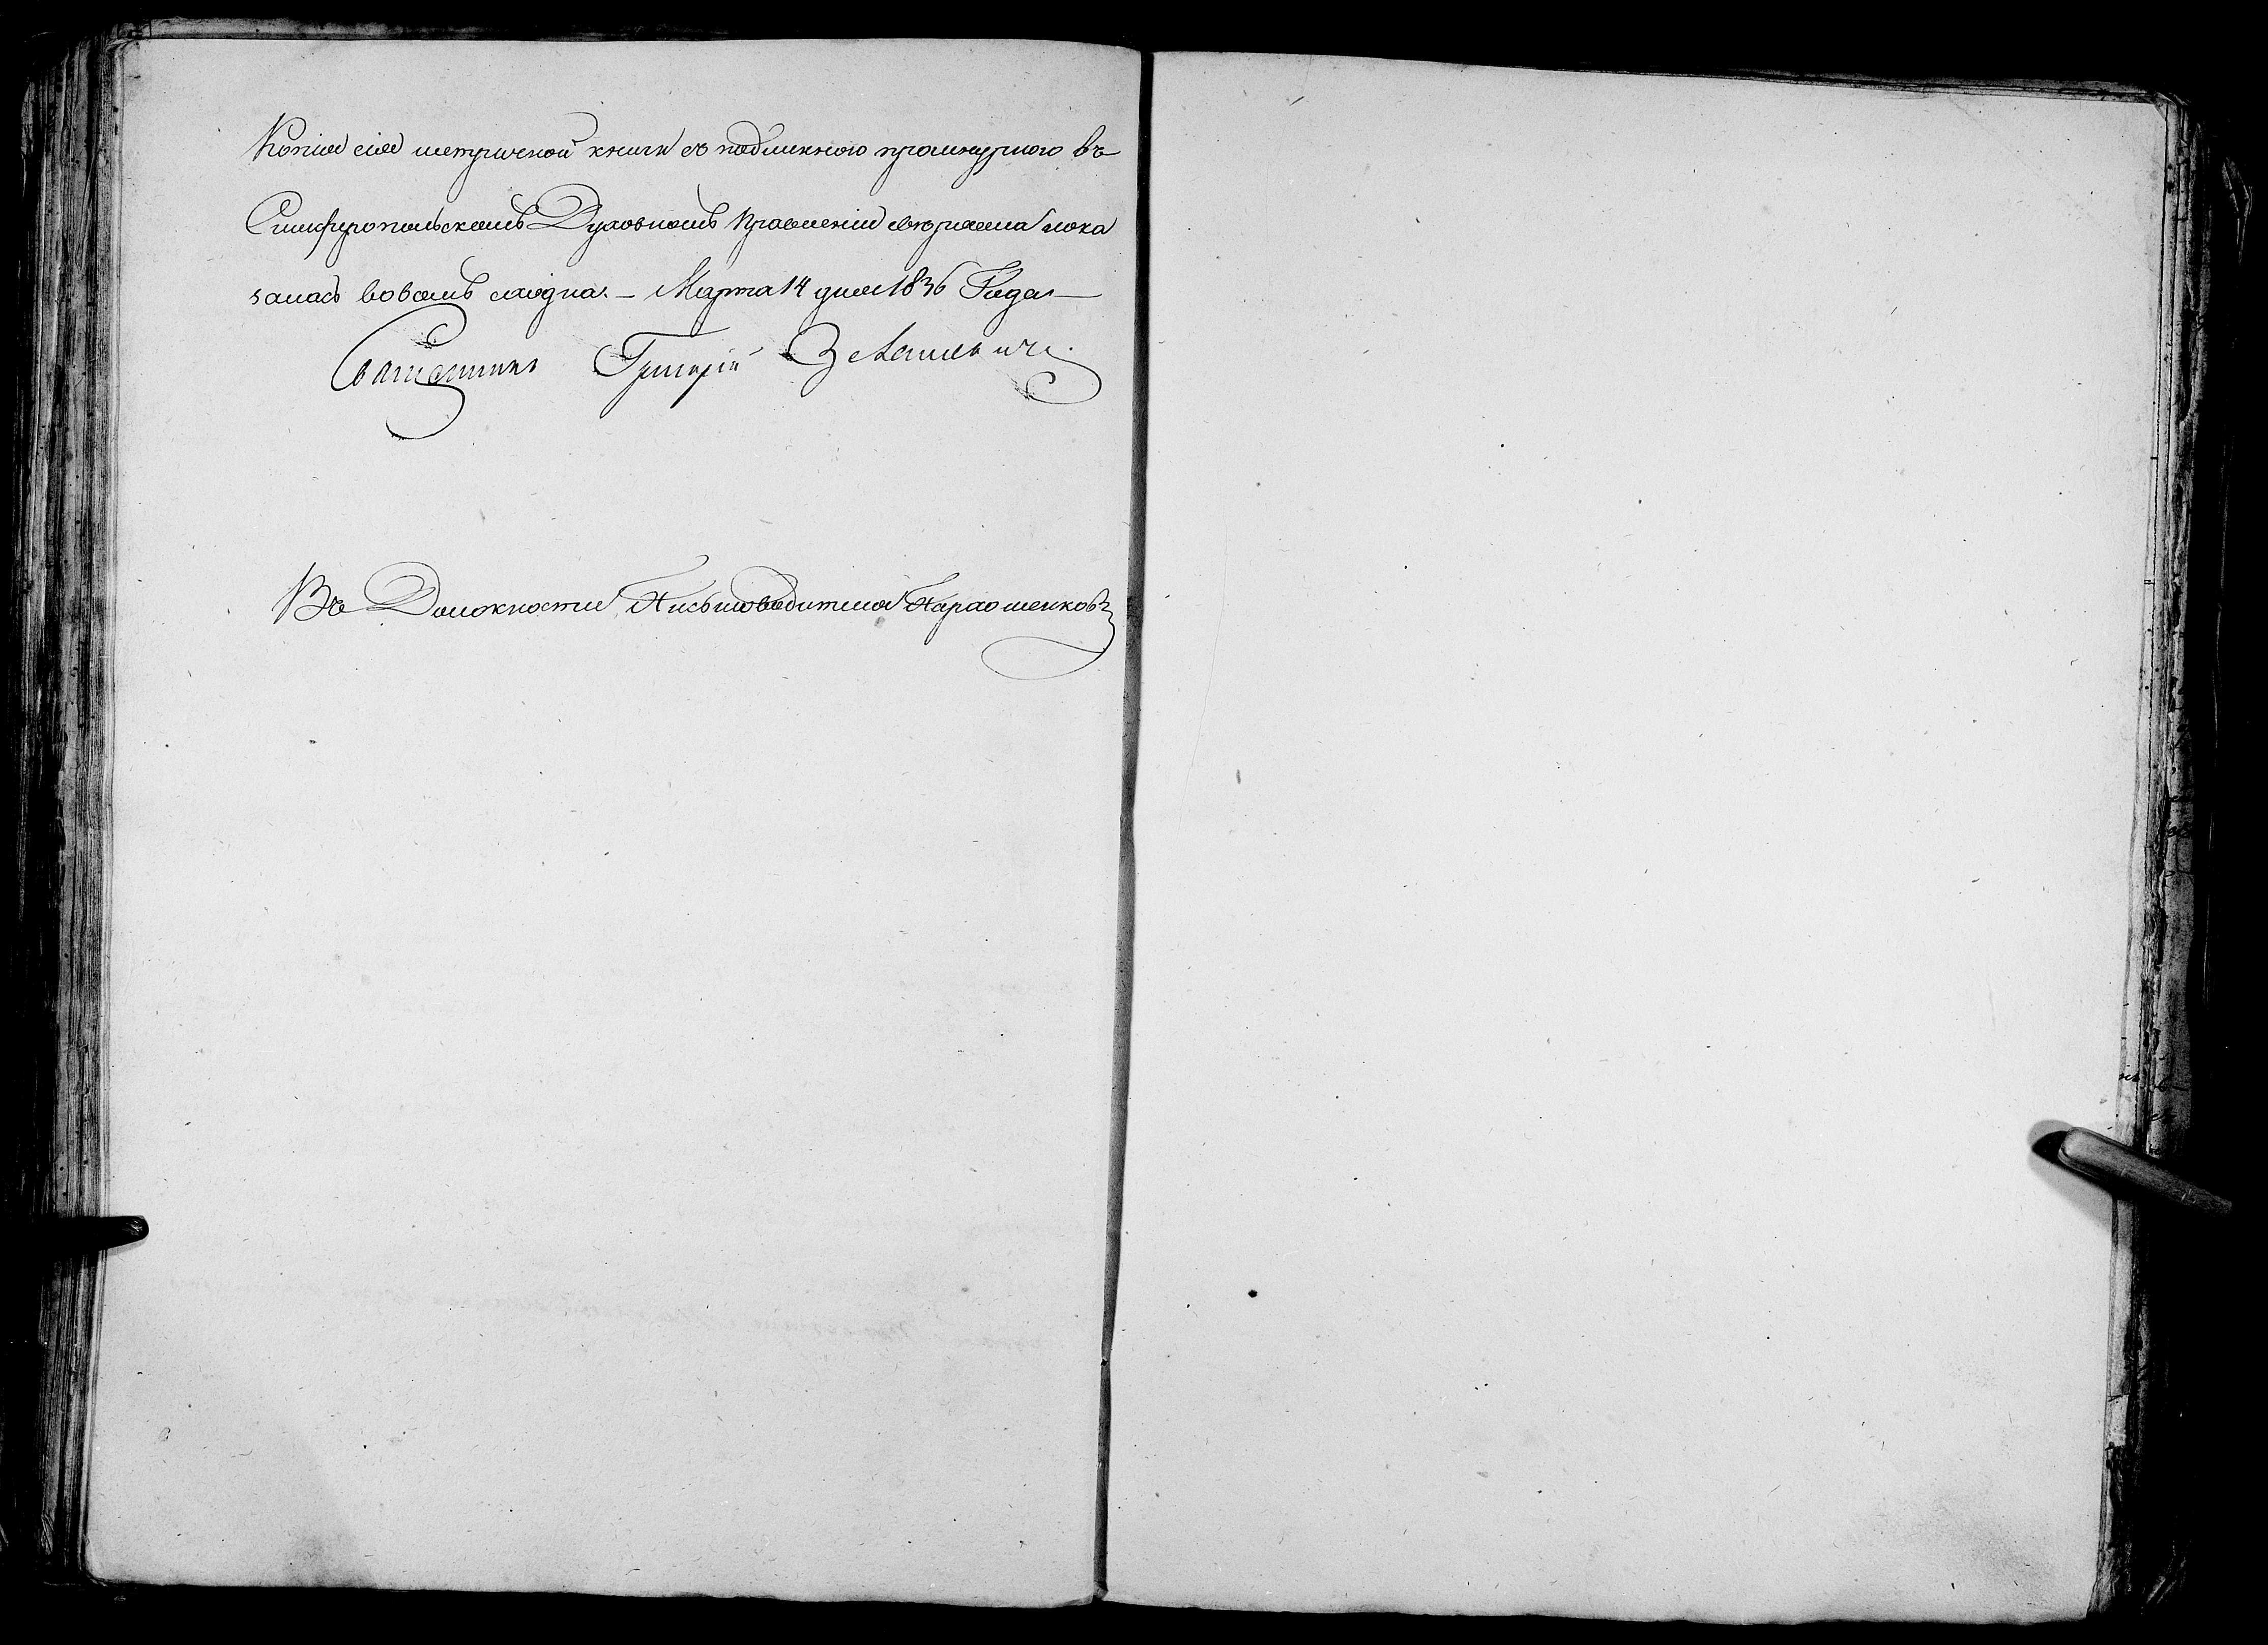 Копія сія метрической книги съ подлинною прошнурного въ
Симферопольскомъ Духовномъ Правленіи свѣряема и ока
залась вовсемъ сходна. – Марта 14 дня 1836 Года –
Священникъ Григорій
Въ Должности Письмоводителя Пархоменковъ